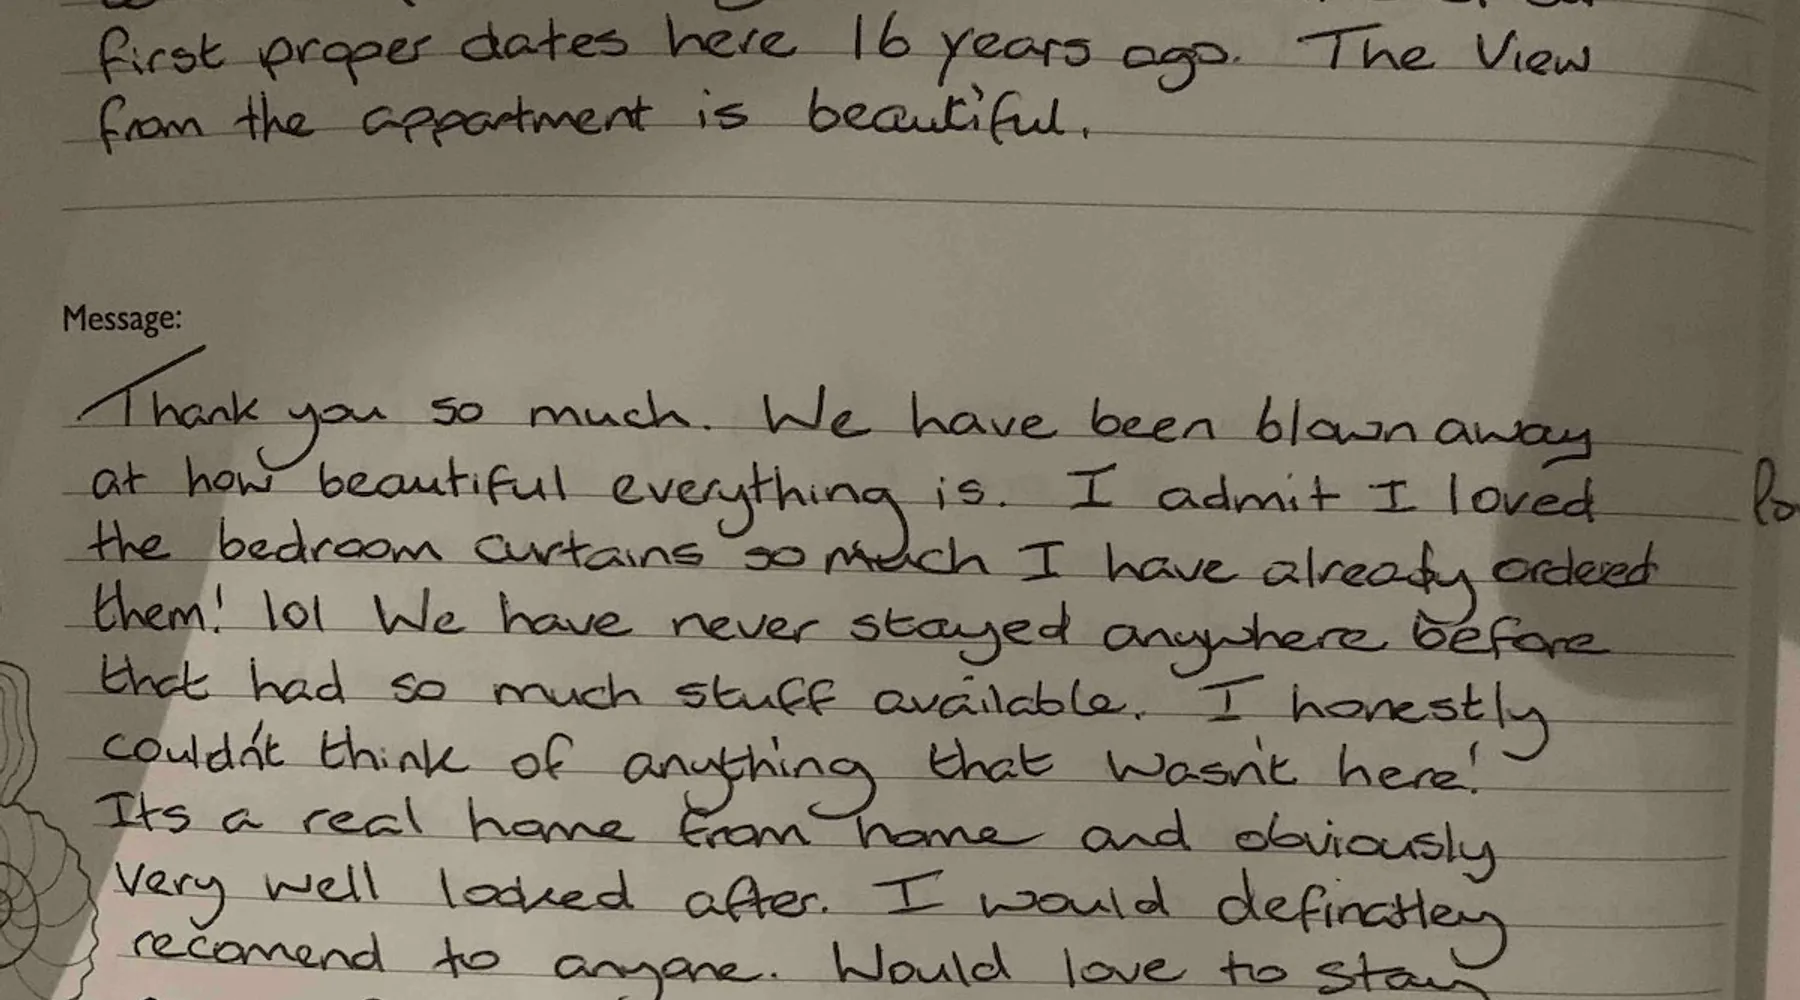 first proper dates here 16 years ago. The View
from the appartment is beautiful.
Message:
Thank you so much. We have been blown away
at how beautiful everything is. I admit I loved
the bedroom curtains so much I have already ordered
them! lol We have never stayed anywhere before
that had so much stuff available. I honestly
couldn't think of anything that wasn't here!
Its a real home from home and obviously
very well looked after. I would definatley
recomend to anyone. Would love to stay